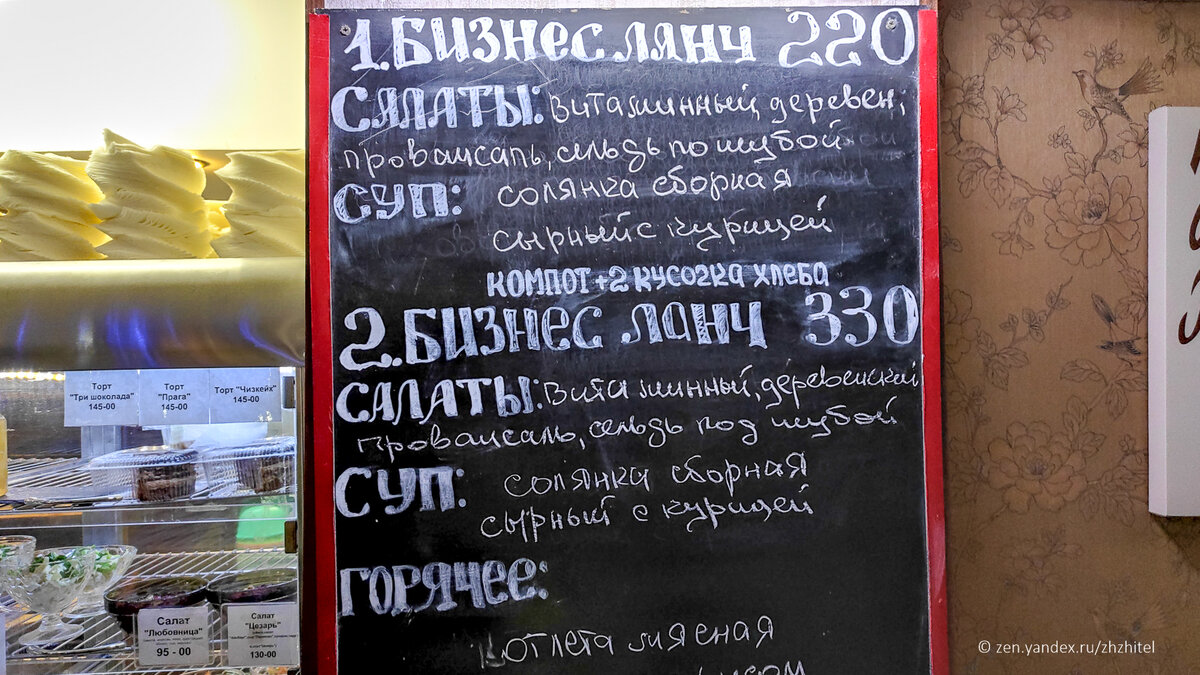 1. БИЗНЕС ЛАНЧ 220
САЛАТЫ: Витаминный, деревен;
провансаль, сельдь по шубой
СУП: солянка сборная
сырный с курицей
КОМПОТ + 2 КУСОЧКА ХЛЕБА
2. БИЗНЕС ЛАНЧ 330
САЛАТЫ: Витаминный, деревенский
провансаль, сельдь под шубой
СУП: солянка сборная
сырный с курицей
ГОРЯЧЕЕ:
котлета мясная
Торт "Три шоколада" 145-00
Торт "Прага" 145-00
Торт "Чизкейк" 145-00
Салат "Любовница"
95 - 00
Салат "Цезарь"
130-00
© zen.yandex.ru/zhzhitel